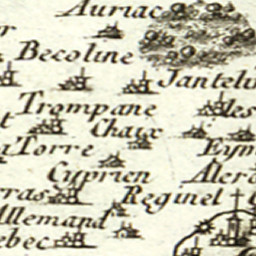 Auriac
Becoline
Jantel
Trompane
les
Chaix
Torre
Eym
Cyprien
Aler
rras
Reginel
Allemand
ebec